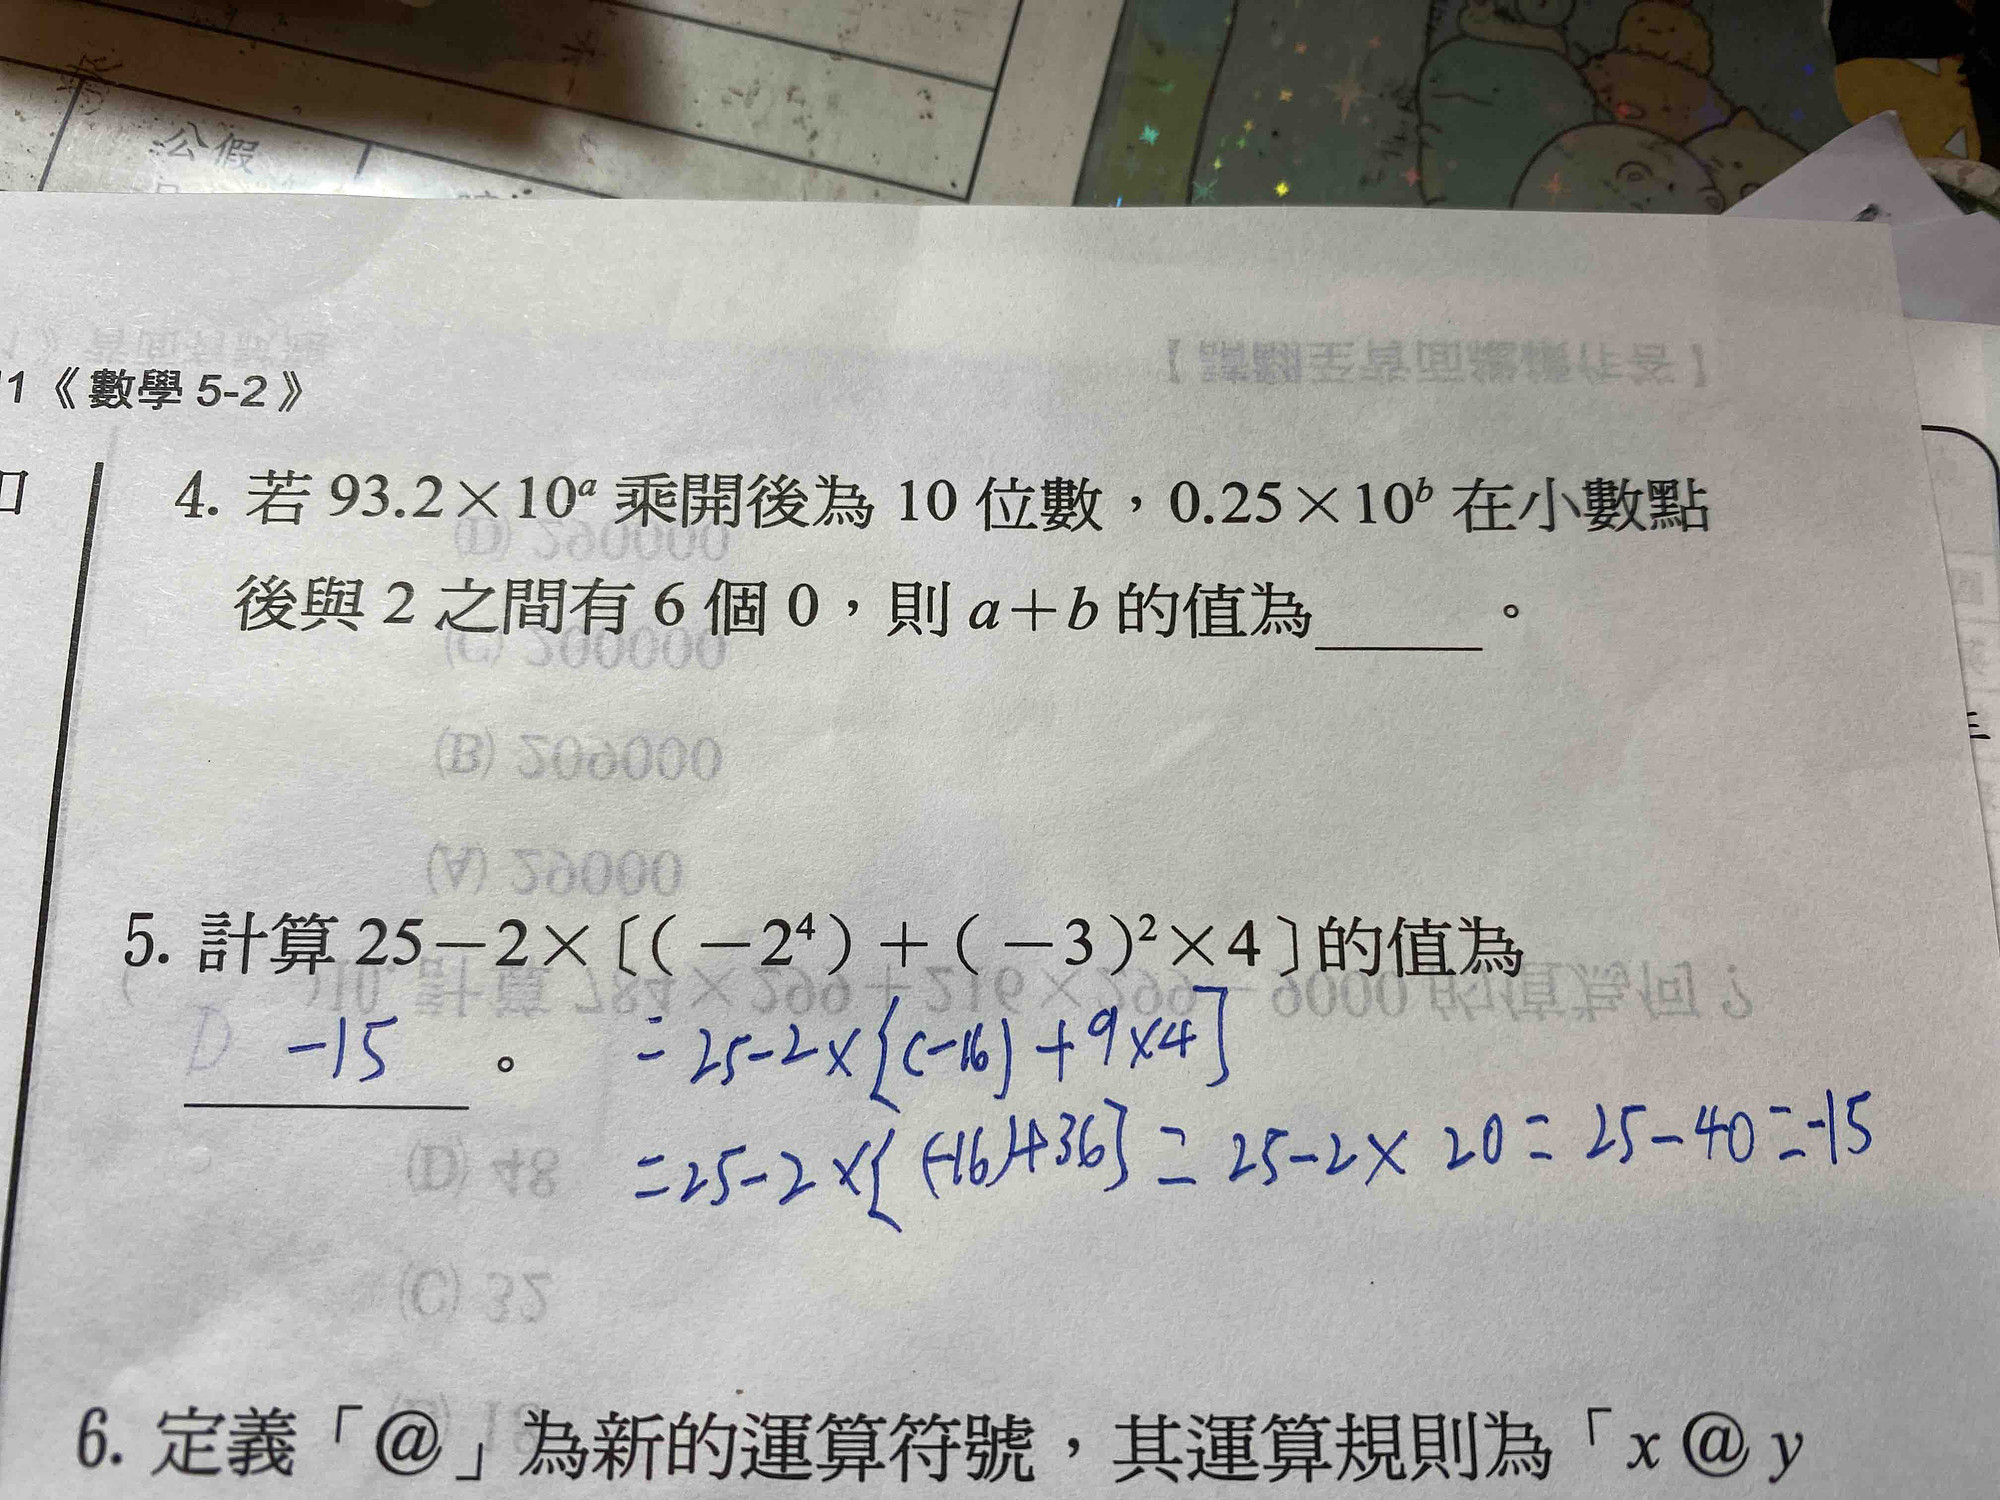 公假
11《數學 5-2》
4. 若 93.2×10ᵃ 乘開後為 10 位數，0.25×10ᵇ 在小數點
後與 2 之間有 6 個 0，則 a＋b 的值為______。
5. 計算 25－2×〔(－2⁴)＋(－3)²×4〕的值為
-15 。 = 25-2×[(-16)+9×4]
=25-2×[(-16)+36] = 25-2×20 = 25-40 = -15
6. 定義「@」為新的運算符號，其運算規則為「x @ y